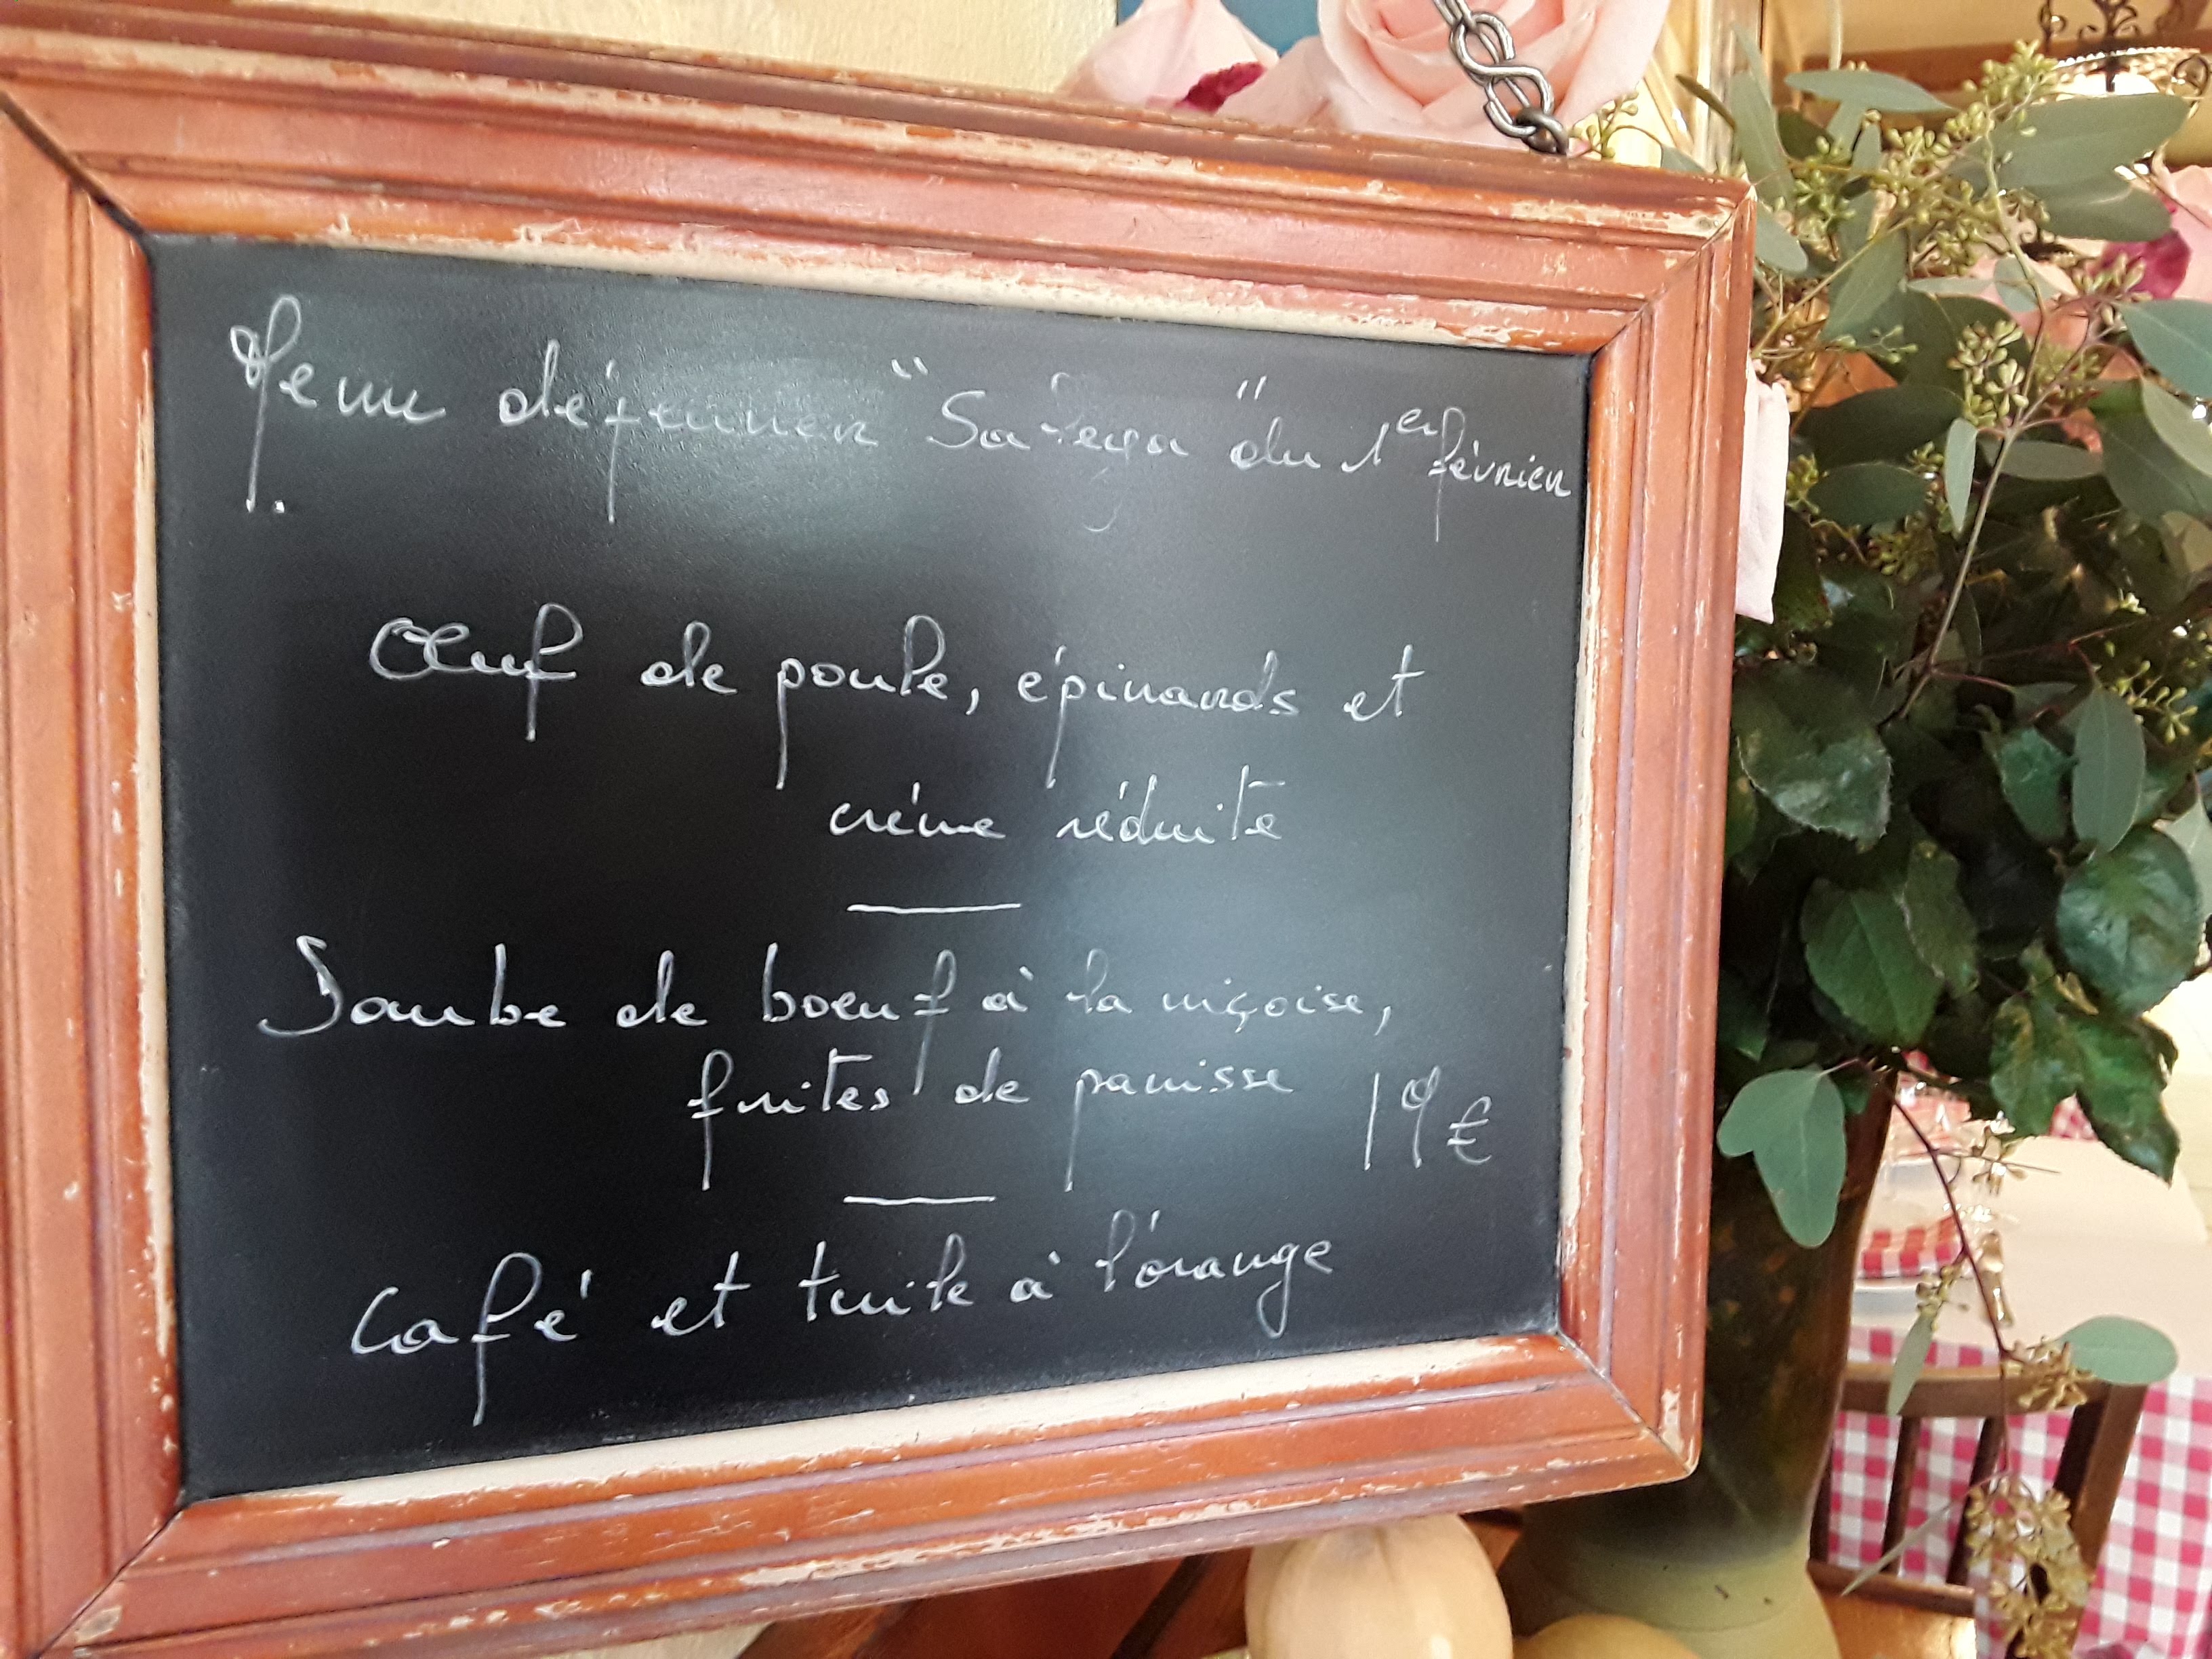 Menu déjeuner "Saleya" du 1er février
Œuf de poule, épinards et
créme réduite
Jambe de boeuf à la niçoise,
frites de panisse 19€
Café et tuile à l'orange